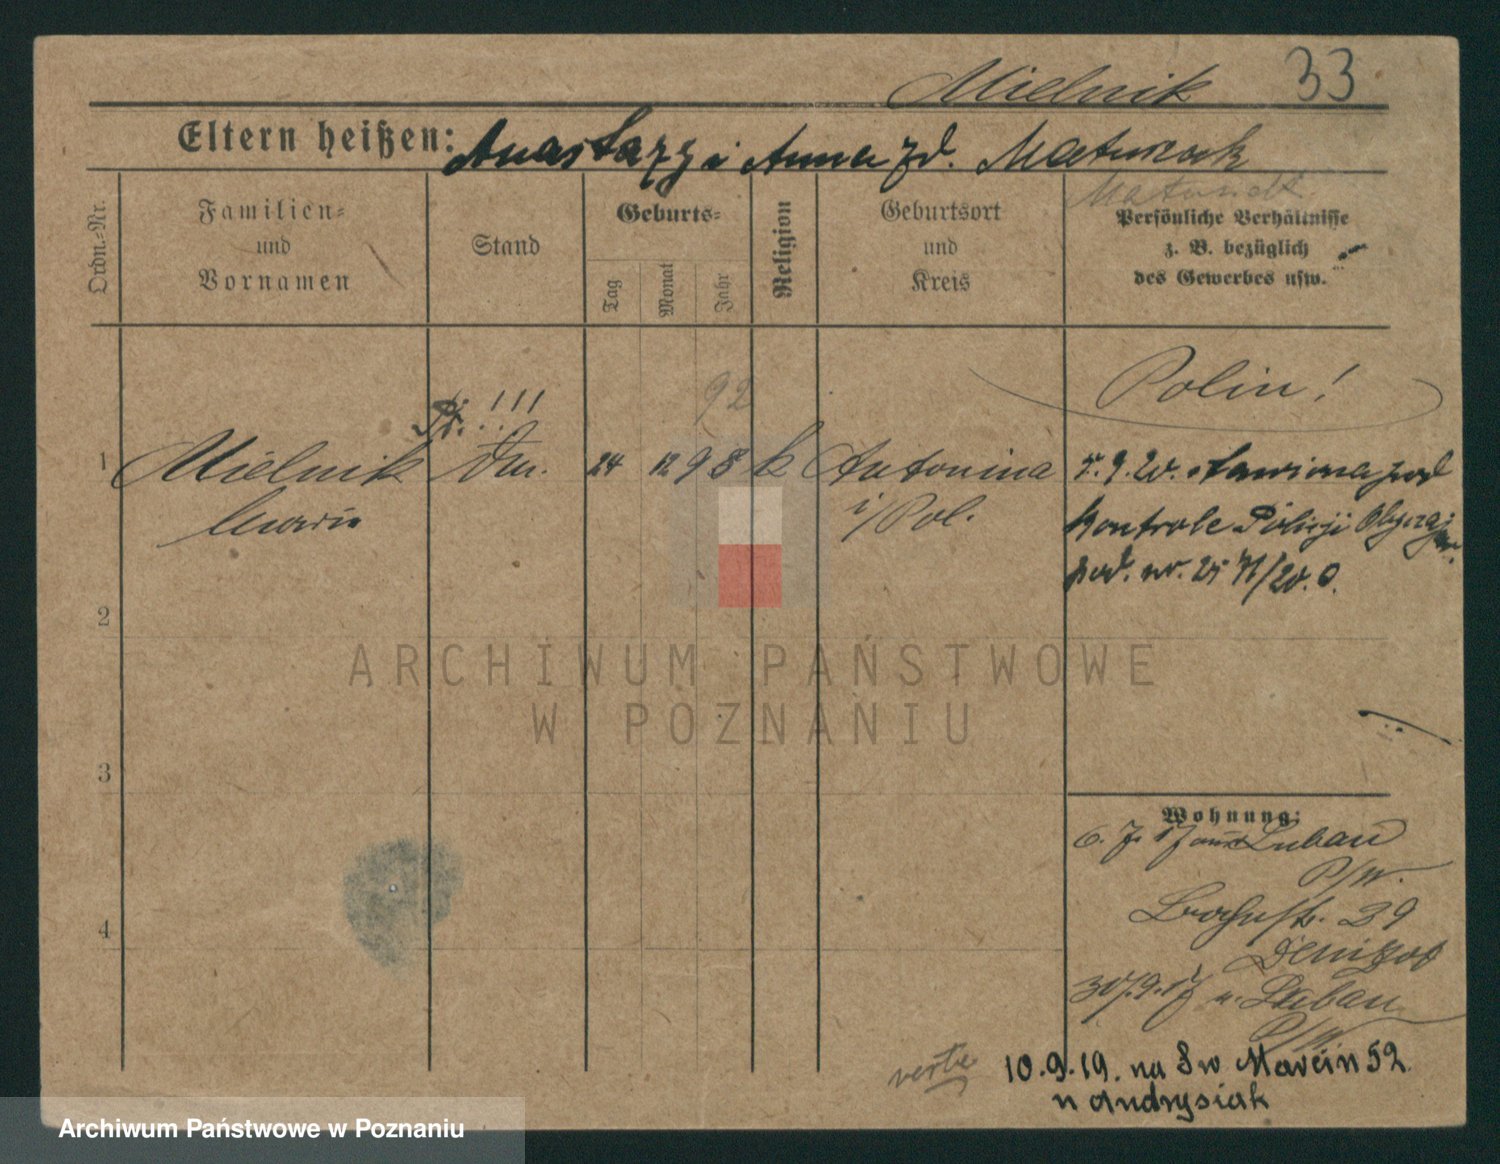 Mielnik 33
Eltern heißen: Anastazy i Anna zd. Maturak
Ordn.-Nr.
Familien-
und
Vornamen
Stand
Geburts-
Tag
Monat
Jahr
Religion
Geburtsort
und
Kreis
Persönliche Verhältnisse
z. B. bezüglich
des Gewerbes usw.
Polin!
92
!!!
1 Mielnik 24 12 98 k Antonina
Maria i/Pol.
7.9.20. stawiona pod
kontrole Policji Obyczaj.
pod. nr.
2
3
4
Wohnung:
6. 7. 17 aus Luban
P/W.
39
30/9.17 n. Luban
P/W.
verte
10.9.19. na Sw Marcin 52
u Andrysiak
ARCHIWUM PAŃSTWOWE
W POZNANIU
Archiwum Państwowe w Poznaniu